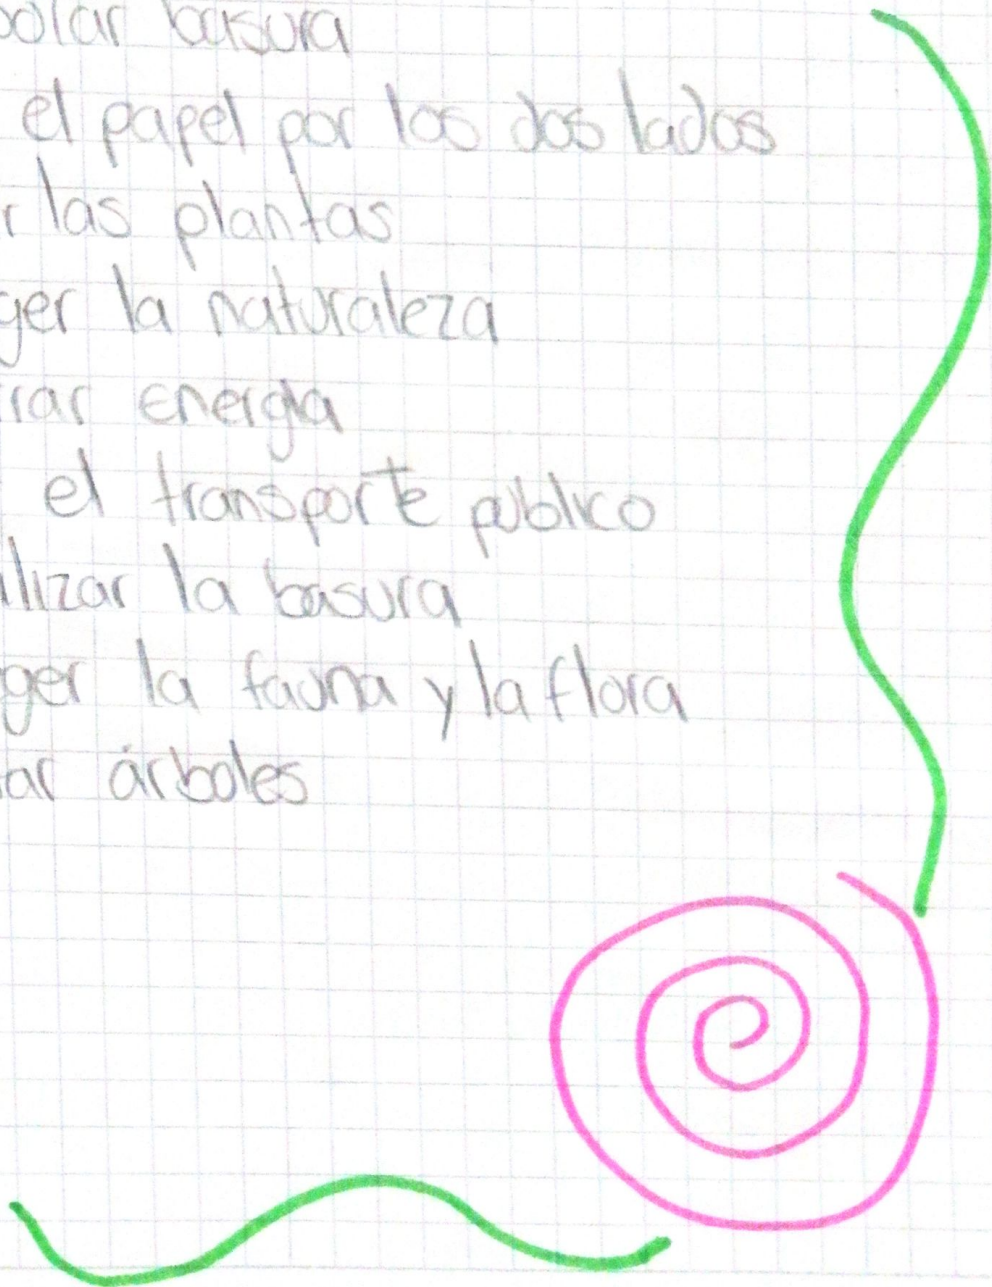 botar basura
el papel por los dos lados
r las plantas
ger la naturaleza
rar energia
el transporte publico
ilizar la basura
ger la fauna y la flora
ar árboles